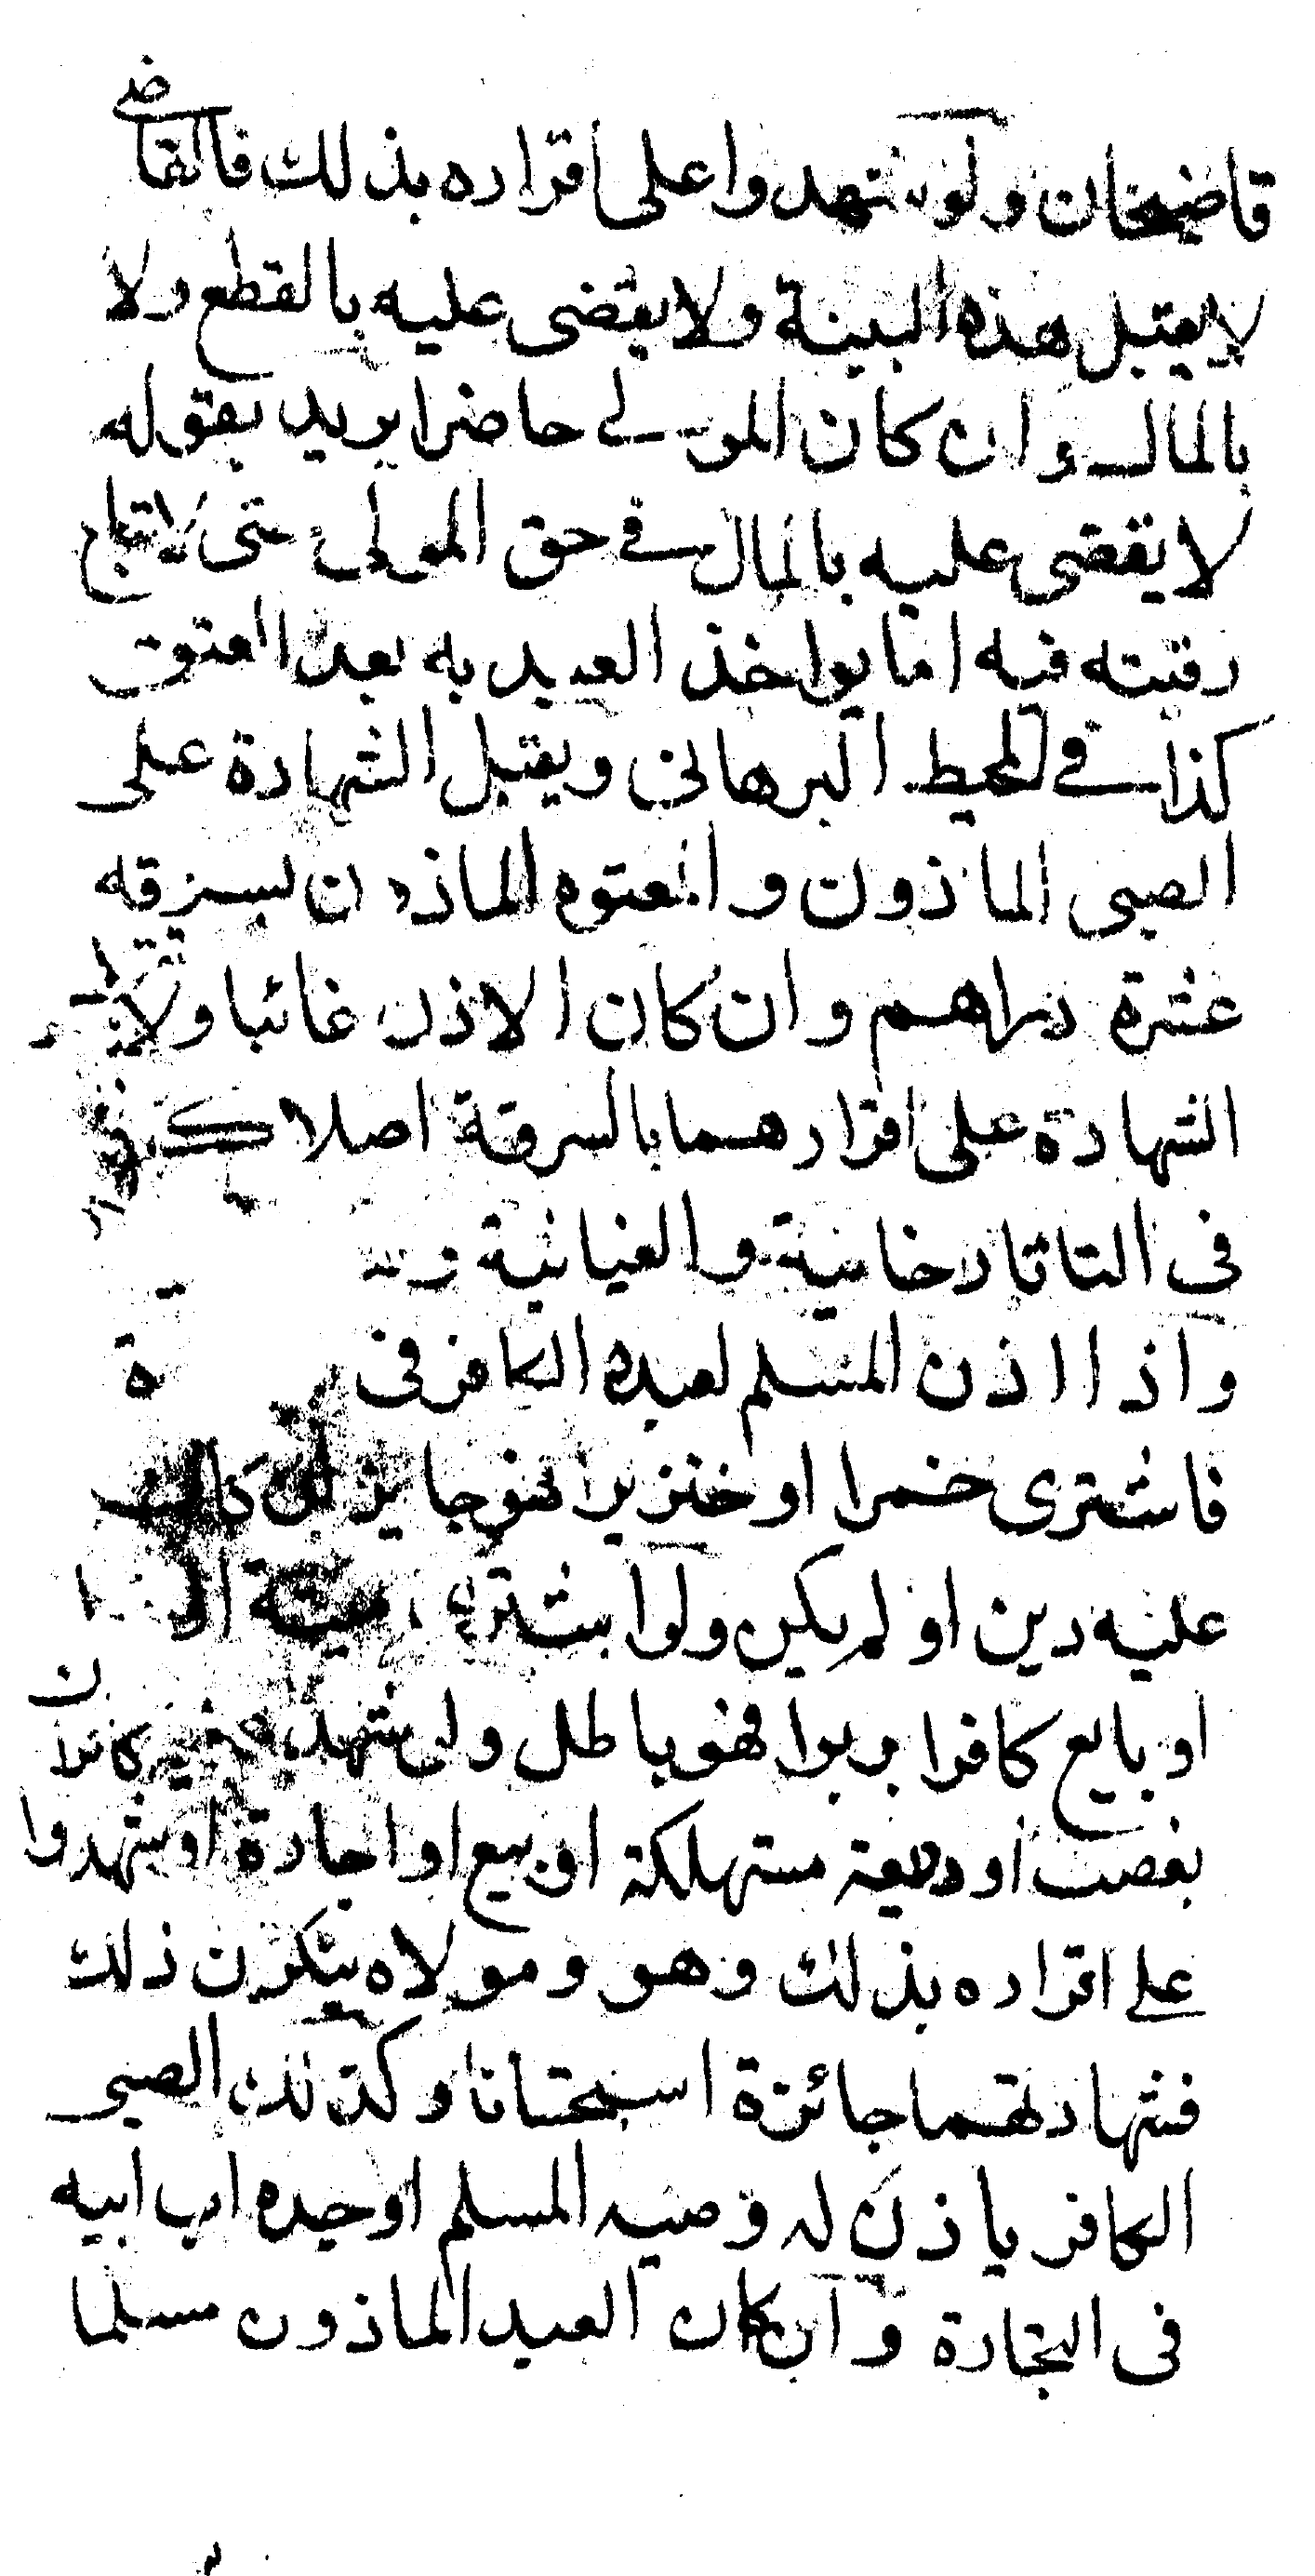 قاضيخان ولو شهدوا على اقراره بذلك فالقاضي
لا يقبل هذه البينة ولا يقضى عليه بالقطع ولا
بالمال وان كان المولى حاضرا يريد بقوله
لا يقضى عليه بالمال في حق المولى حتى لا تباع
رقبته فيه اما يواخذ العبد به بعد العتق
كذا في المحيط البرهانى ويقبل الشهادة على
الصبى الماذون والمعتوه الماذون بسرقه
عشرة دراهم وان كان الاذن غائبا ولا تقبل
الشهادة على اقرارهما بالسرقة اصلا كذا
فى التاتارخانية والغياثية
واذا اذن المسلم لعبده الكافر فى
فاشترى خمرا او خنزيرا فهو جايز كان
عليه دين او لم يكن ولو اشترى ميتة
او بايع كافرا بربوا فهو باطل ولو شهد عليه كافران
بغصب او وديعة مستهلكة او بيع او اجارة او شهدوا
على اقراره بذلك وهو ومولاه ينكرن ذلك
فشهادتهما جائزة استحسانا وكذلك الصبى
الكافر ياذن له وصيه المسلم او جده اب ابيه
فى التجارة وان كان العبد الماذون مسلما